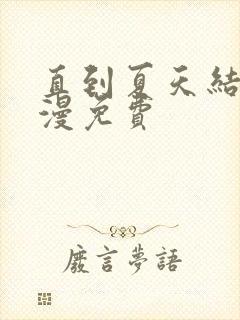 直到夏天結
漫免費
廢言夢語